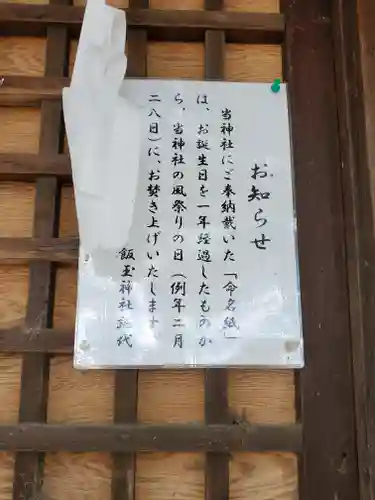 お知らせ
当神社にご奉納戴いた「命名紙」
は、お誕生日を一年経過したものか
ら、当神社の風祭りの日（例年二月
二八日）に、お焚き上げいたします
飯玉神社総代